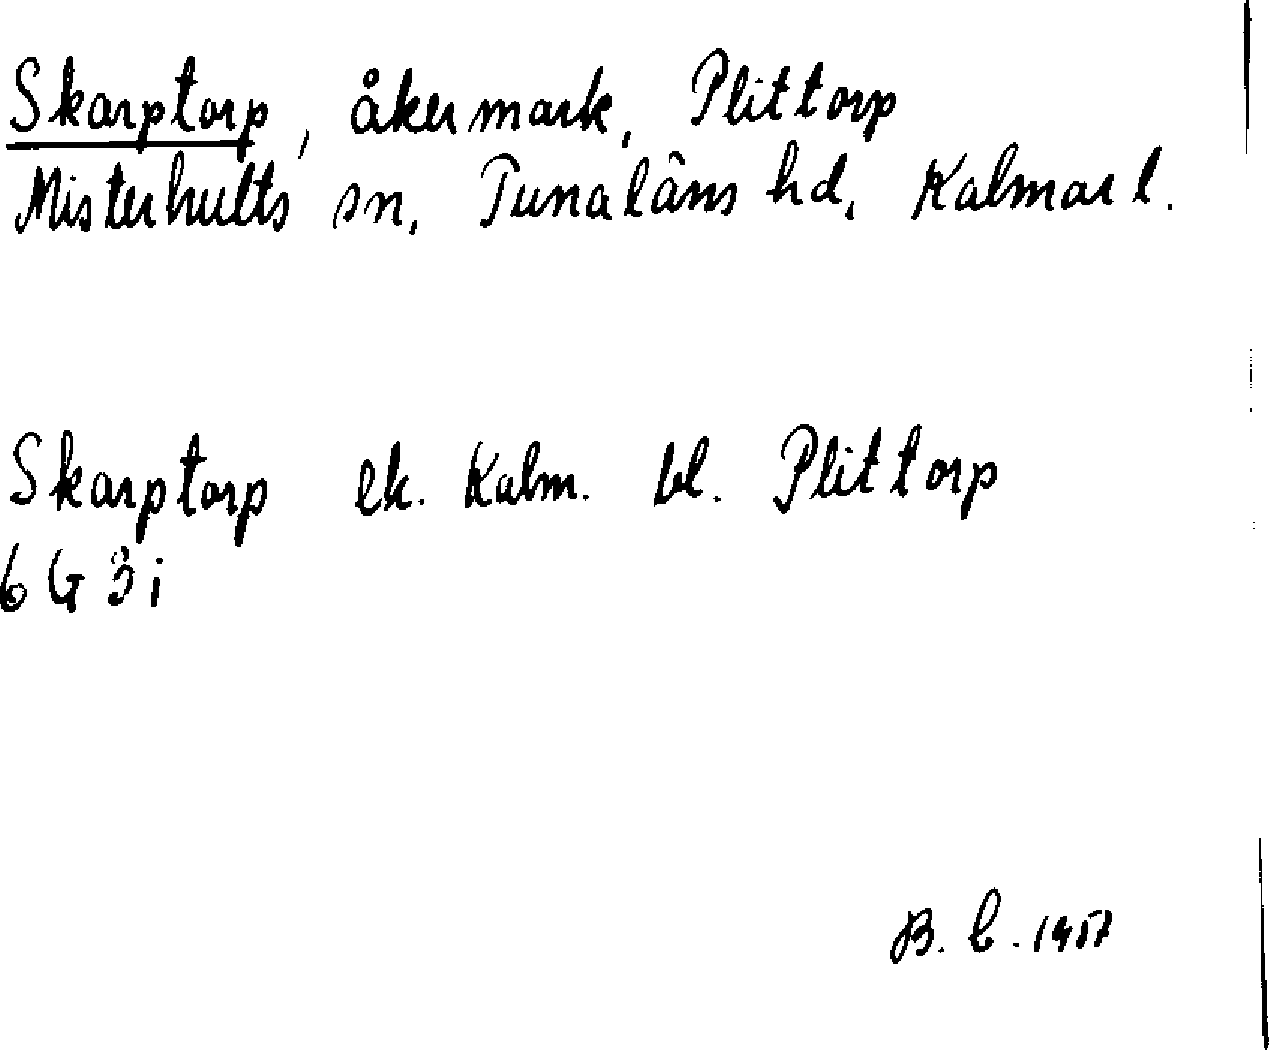 Skarptorp, åkermark, Plittorp
Misterhults sn, Tunaläns hd, Kalmar l.
Skarptorp ek. Kalm. bl. Plittorp
6 G 3 i
B. C. 1957